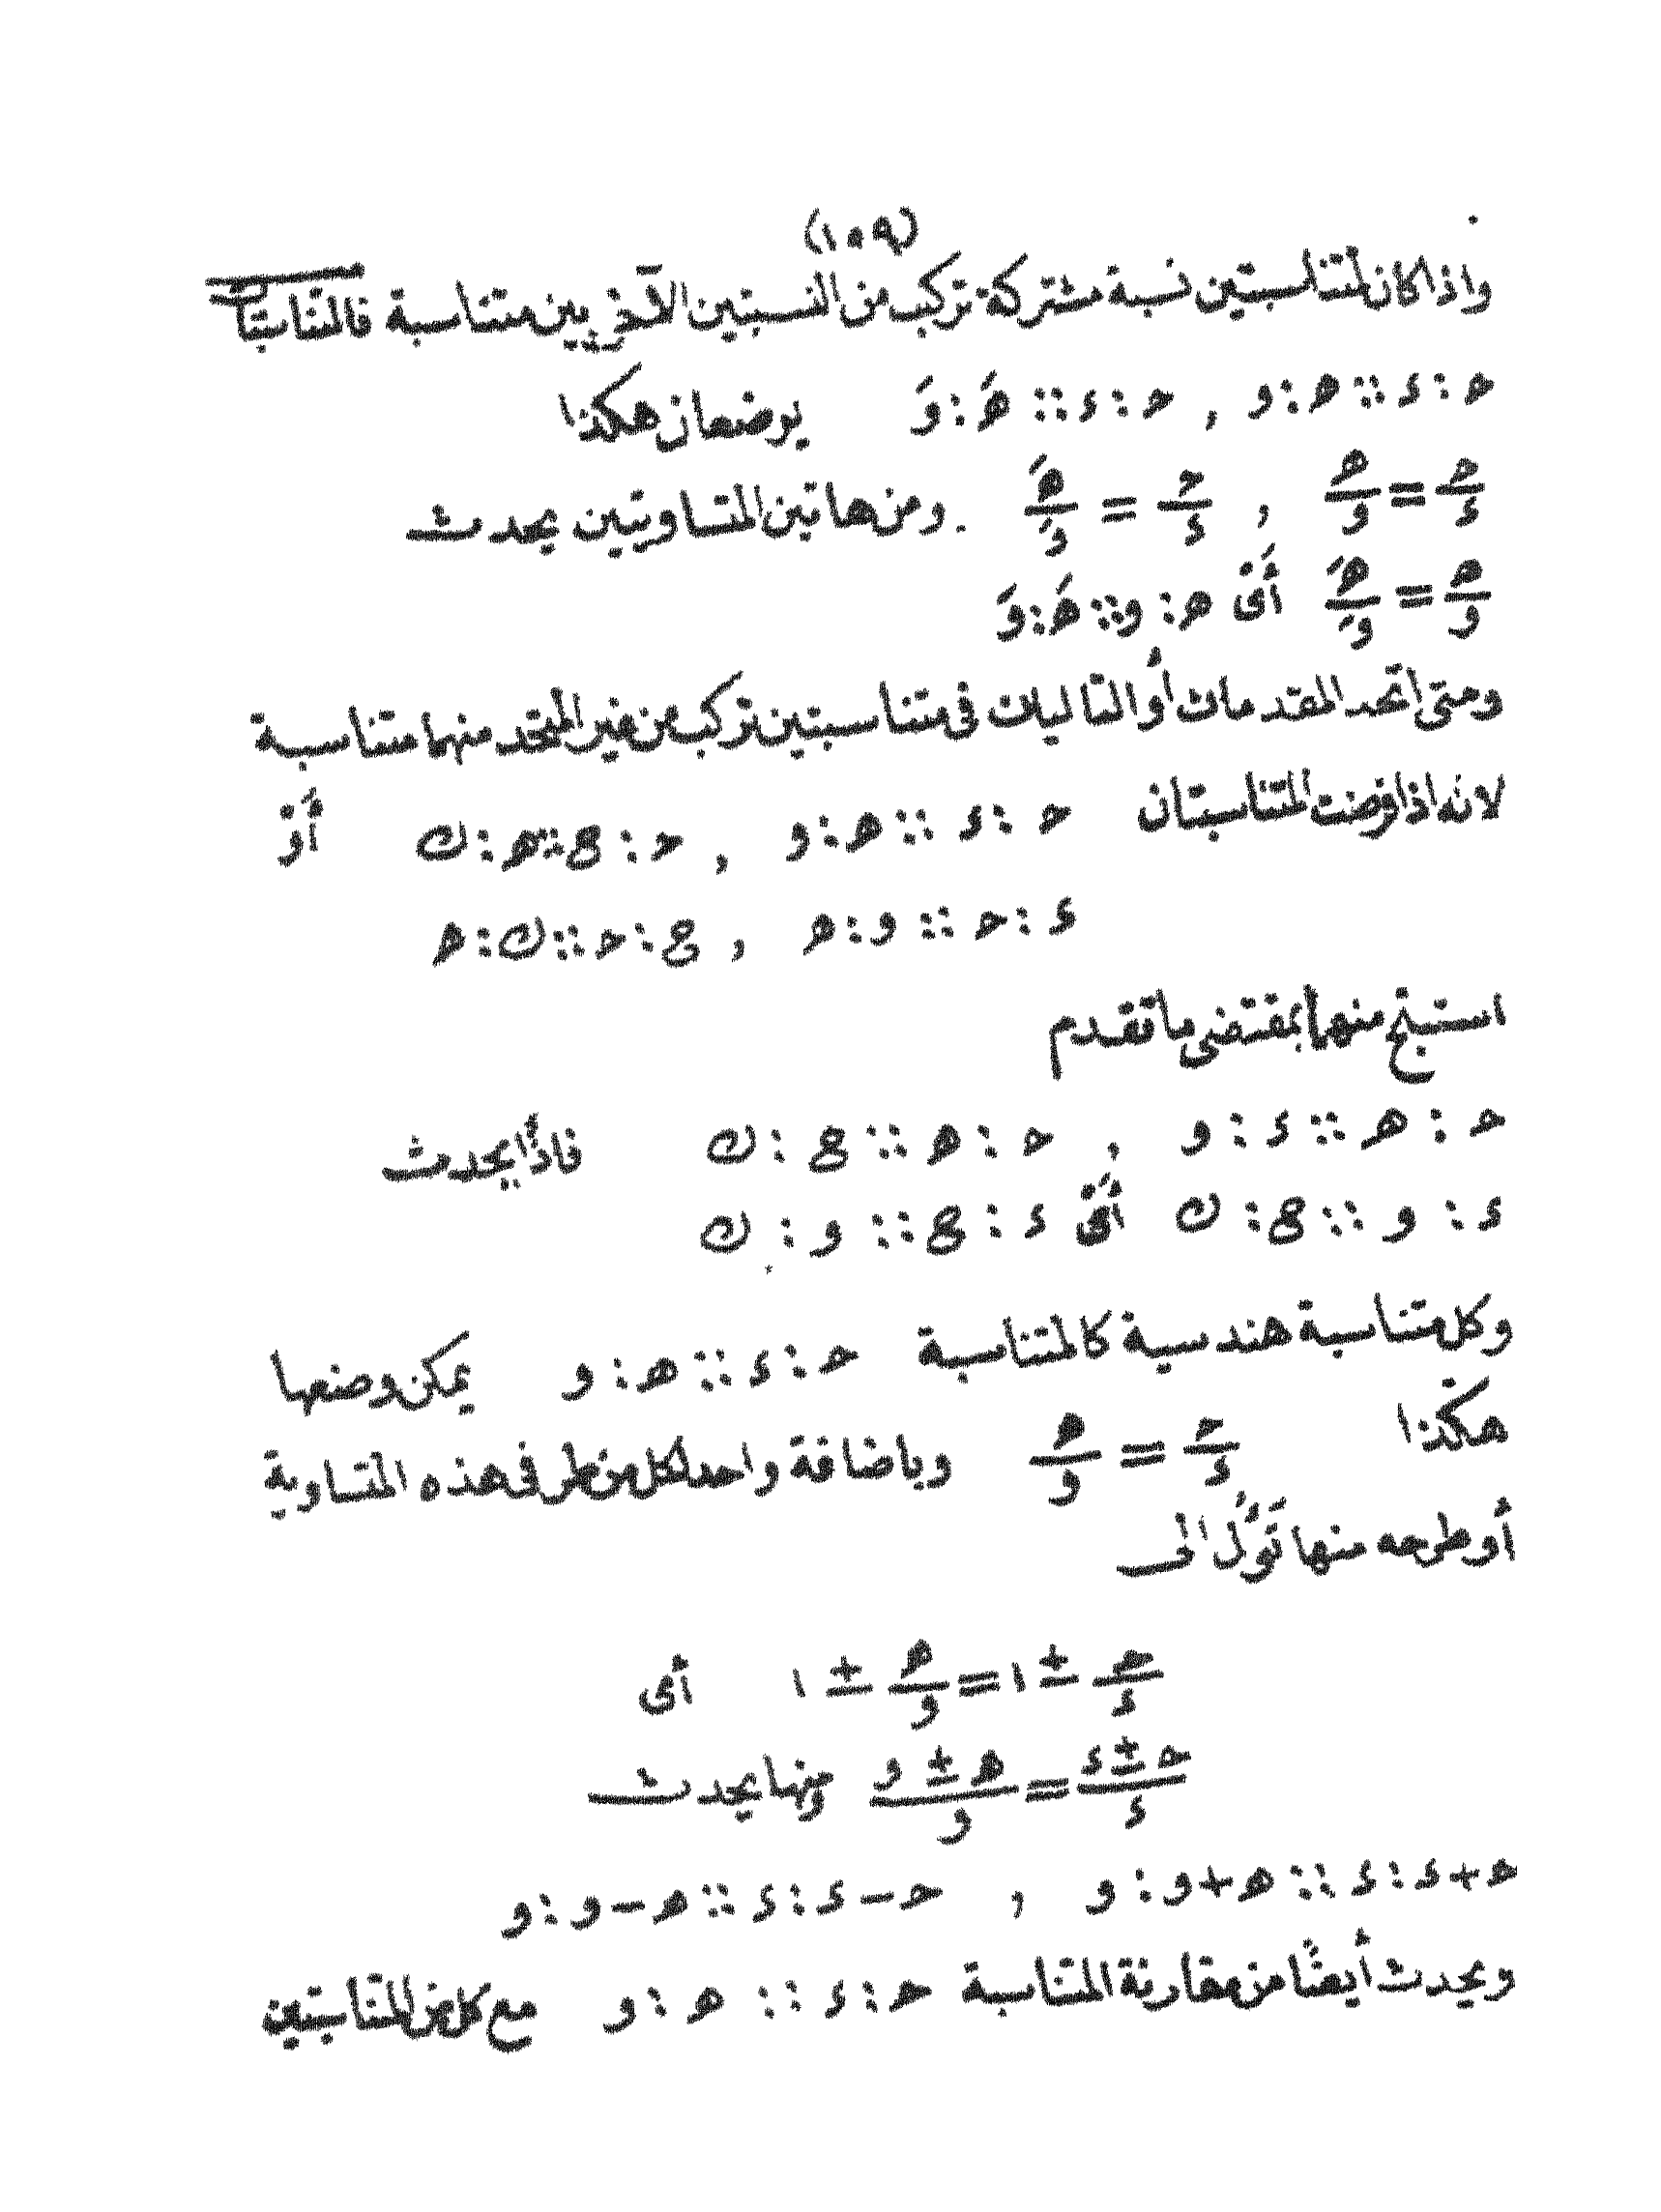 (١٠٩)
واذا كان لمتناسبتين نسبة مشتركة تركب من النسبتين الآخريين متناسبة فالمتناسبتان
حـ : ء :: هـ : و , حـ : ء :: هَـ : وَ يوضعان هكذا
حـ/ء = هـ/و , حـ/ء = هَـ/وَ ومن هاتين المتساويتين يحدث
هـ/و = هَـ/وَ أى هـ : و :: هَـ : وَ
ومتى اتحد المقدمات أو التاليات فى متناسبتين تركب من غير المتحد منهما متناسبة
لانه اذا فرضت المتناسبتان حـ : ء :: هـ : و , حـ : ع :: هـ : ك أو
ء : حـ :: و : هـ , ع : حـ :: ك : هـ
استنتج منهما بمقتضى ماتقدم
حـ : هـ :: ء : و , حـ : هـ :: ع : ك فاذًا يحدث
ء : و :: ع : ك أى ء : ع :: و : ك
وكل متناسبة هندسية كالمتناسبة حـ : ء :: هـ : و يمكن وضعها
هكذا حـ/ء = هـ/و وباضافة واحد لكل من طرفى هذه المتساوية
أو طرحه منها تؤل الى
حـ/ء ± ١ = هـ/و ± ١ أى
(حـ ± ء)/ء = (هـ ± و)/و ومنها يحدث
حـ + ء : ء :: هـ + و : و , حـ − ء : ء :: هـ − و : و
ويحدث أيضًا من مقارنة المتناسبة حـ : ء :: هـ : و مع كل من المتناسبتين